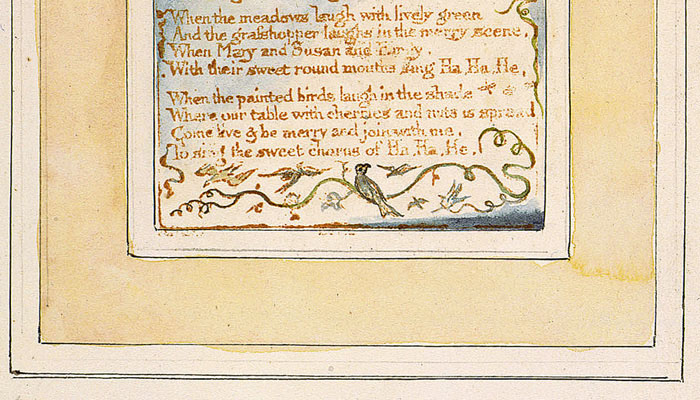 When the meadows laugh with lively green
And the grasshopper laughs in the merry scene,
When Mary and Susan and Emily.
With their sweet round mouths sing Ha, Ha, He,
When the painted birds laugh in the shade
Where our table with cherries and nuts is spread
Come live & be merry and join with me,
To sing the sweet chorus of Ha, Ha, He.